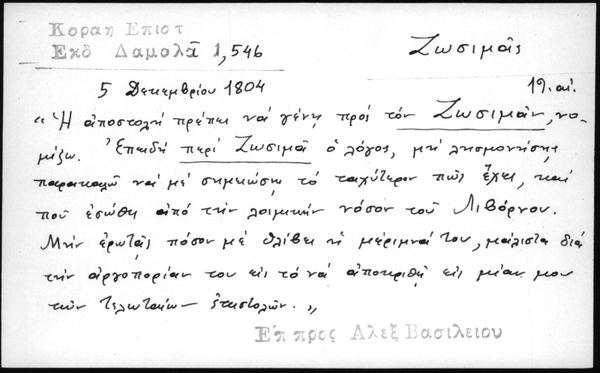 Κοραη Επιστ
Εκδ Δαμαλᾶ 1, 546
Ζωσιμᾶς
5 Δεκεμβρίου 1804
19. αἰ.
"Ἡ ἀποστολὴ πρέπει νὰ γένῃ πρὸς τὸν Ζωσιμᾶν, νο-
μίζω. Ἐπειδὴ περὶ Ζωσιμᾶ ὁ λόγος, μὴ λησμονήσῃς
παρακαλῶ νὰ μὲ σημειώσῃς τὸ ταχύτερον πῶς ἔχει, καὶ
ποῦ ἐσώθη ἀπὸ τὴν λοιμικὴν νόσον τοῦ Λιβόρνου.
Μὴν ἐρωτᾷς πόσον μὲ θλίβει ἡ μέριμνά του, μάλιστα διὰ
τὴν ἀργοπορίαν του εἰς τὸ νὰ ἀποκριθῇ εἰς μίαν μου
τῶν ἐπιστολῶν. "
Επ προς Αλεξ Βασιλειου